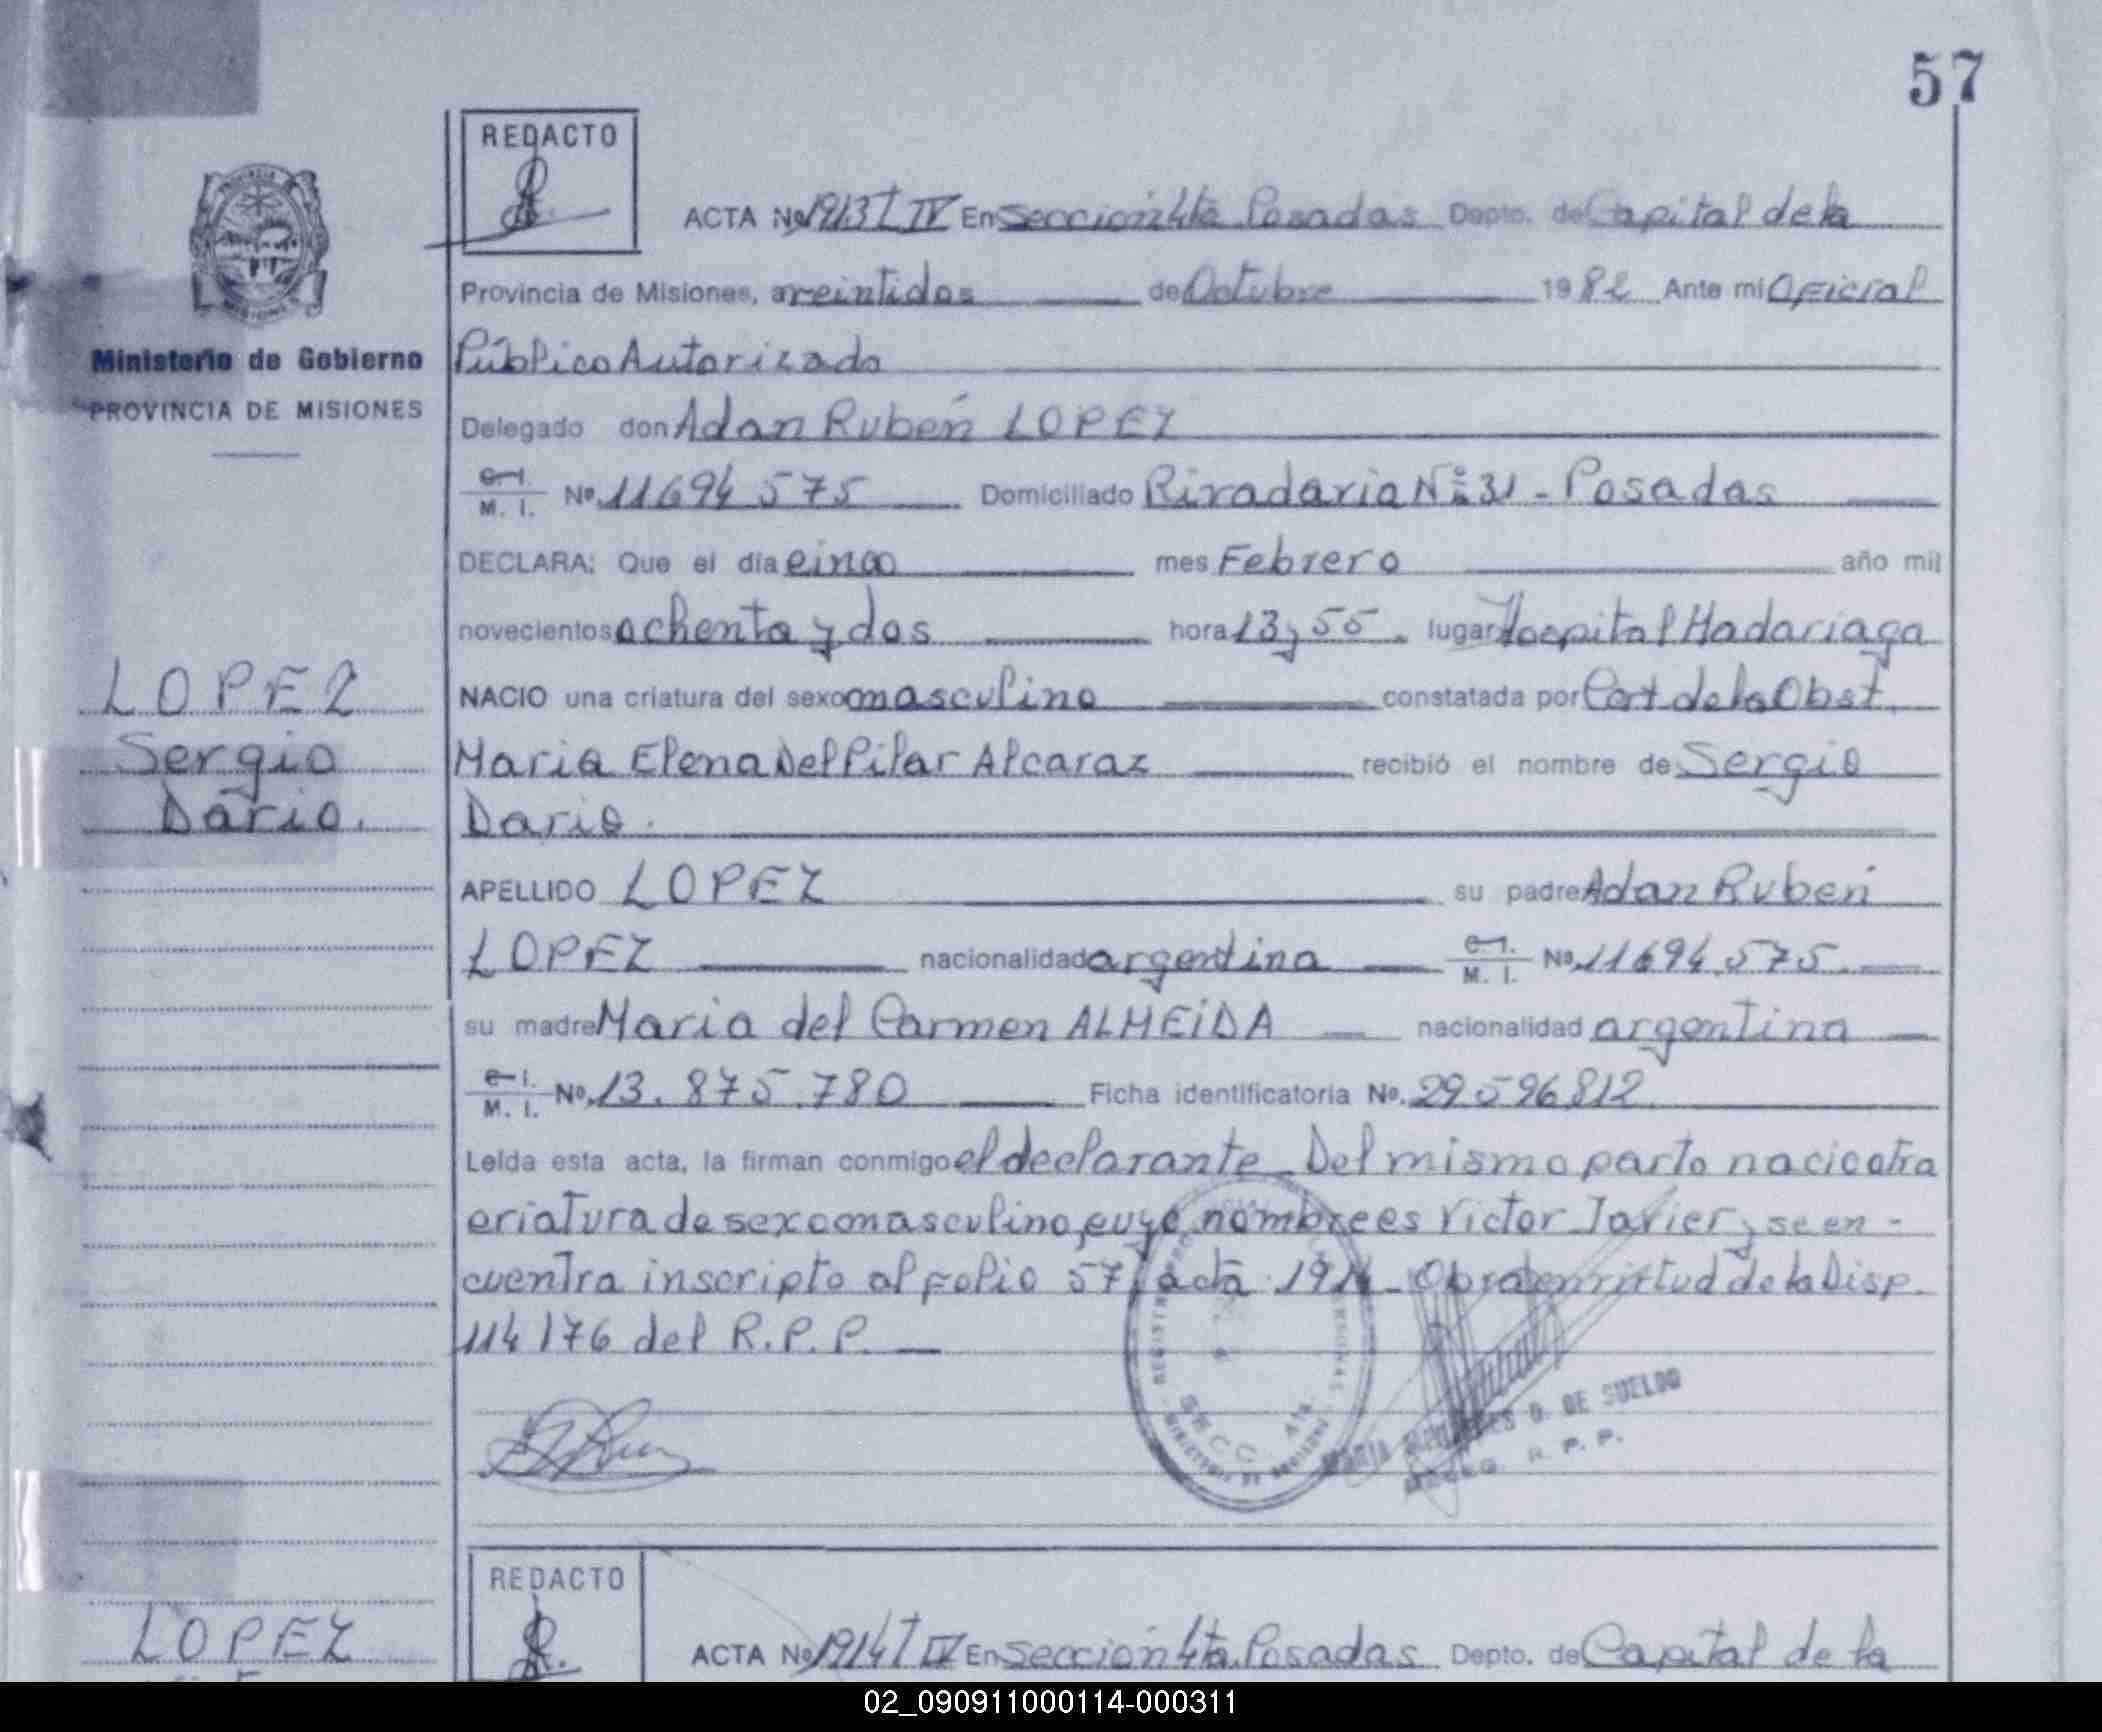 57
REDACTO
ACTA Nº 1913 T IV En Sección 4ta Posadas Depto. de Capital de la
Provincia de Misiones, a veintidos de Octubre 1982 Ante mi Oficial
Ministerio de Gobierno
Público Autorizado
PROVINCIA DE MISIONES
Delegado don Adan Rubén LOPEZ
C. I.
M. I. Nº 11694575 Domiciliado Rivadavia Nº 31 - Posadas
DECLARA: Que el día cinco mes Febrero año mil
novecientos ochenta y dos hora 13 y 55 lugar Hospital Madariaga
LOPEZ
NACIO una criatura del sexo masculino constatada por Cert. de la Obst.
Sergio
Maria Elena Del Pilar Alcaraz recibió el nombre de Sergio
Dario.
Dario.
APELLIDO LOPEZ su padre Adan Rubén
LOPEZ nacionalidad argentina C. I. M. I. Nº 11694575
su madre Maria del Carmen ALMEIDA nacionalidad argentina
C. I.
M. I. Nº 13.875.780 Ficha identificatoria Nº 29596812
Leída esta acta, la firman conmigo el declarante_Del mismo parto nacio otra
criatura de sexo masculino, cuyo nombre es Victor Javier y se en-
cuentra inscripto al folio 57, acta 1914_Obra en virtud de la Disp.
114/76 del R.P.P._
SECC. 4ta.
MARIA D. DE SUELDO
R. P. P.
REDACTO
LOPEZ
ACTA Nº 1914 T IV En Sección 4ta. Posadas Depto. de Capital de la
02_090911000114-000311